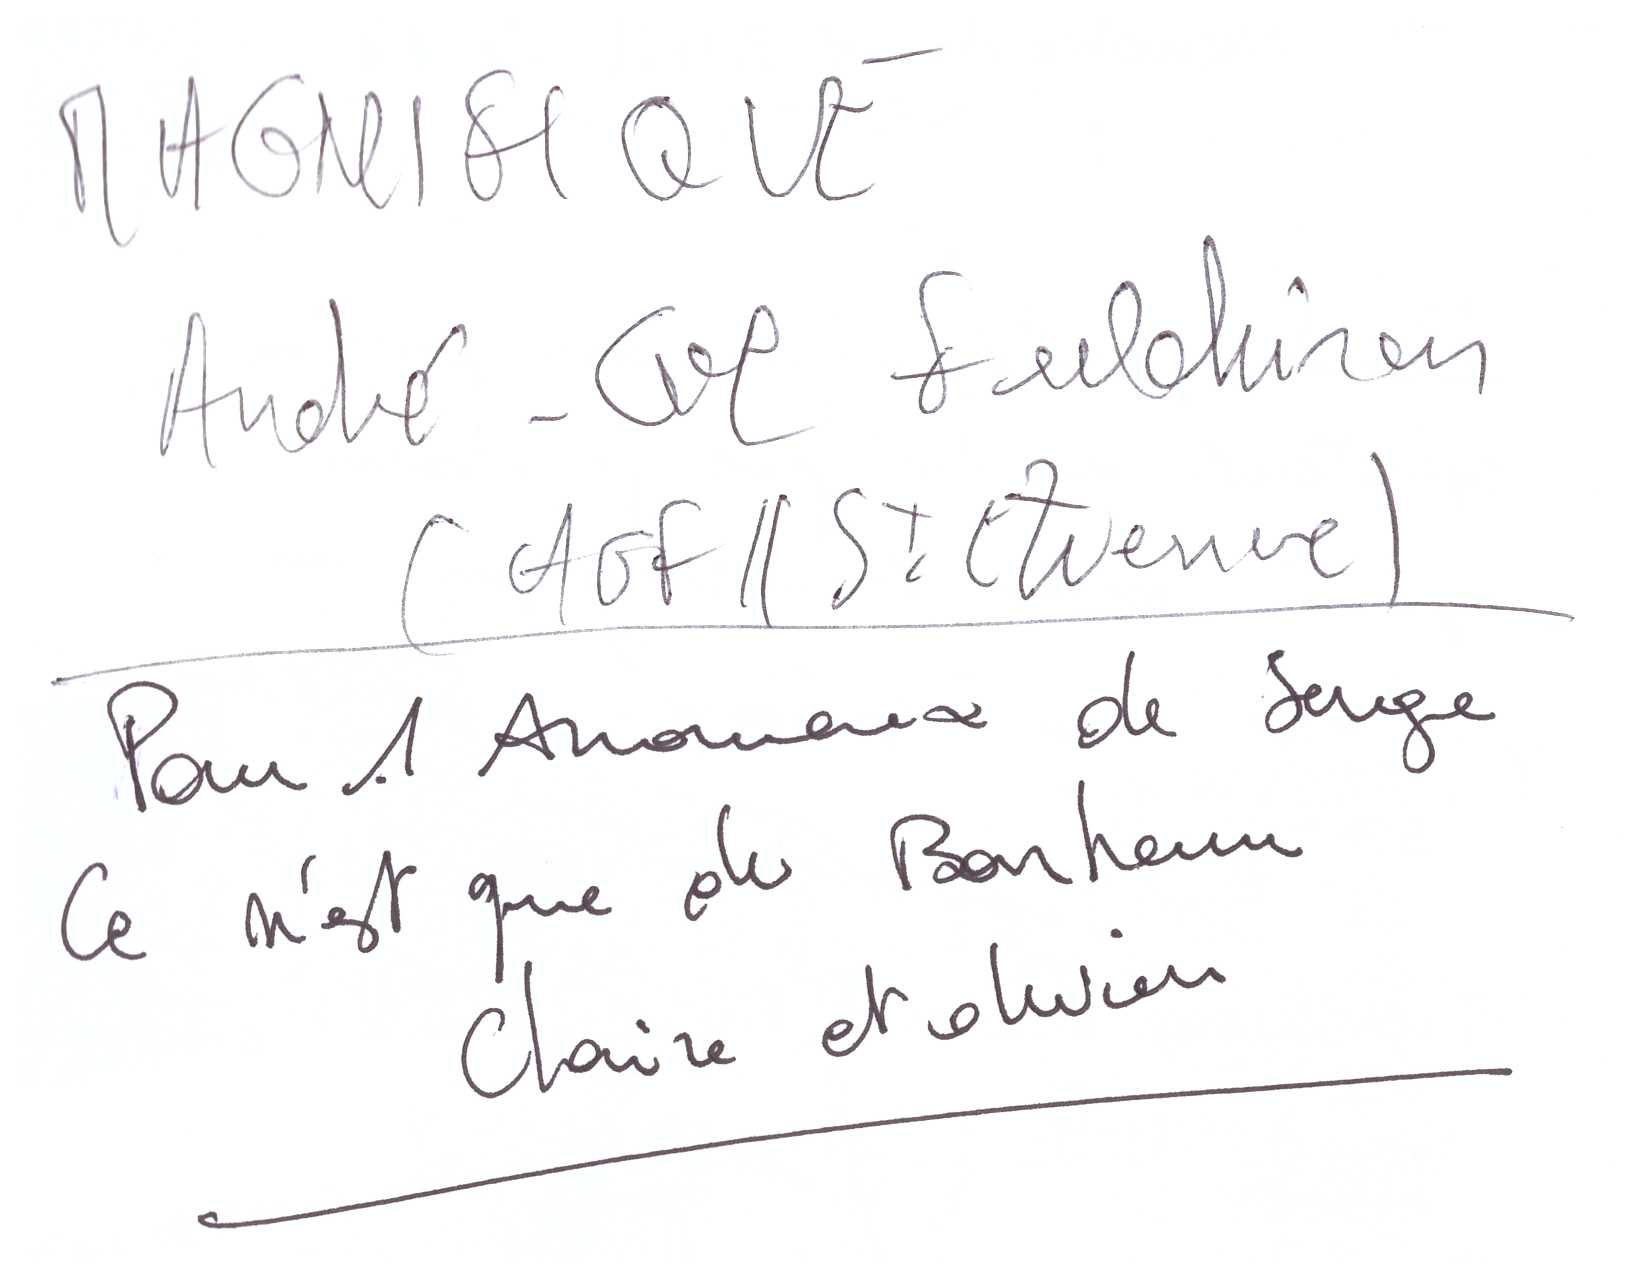 MAGNIFIQUE
André-Guy Fulchiron
(AGF // St Etienne)
Pour 1 Amoureux de Serge
Ce n'est que du Bonheur
Claire et olivier